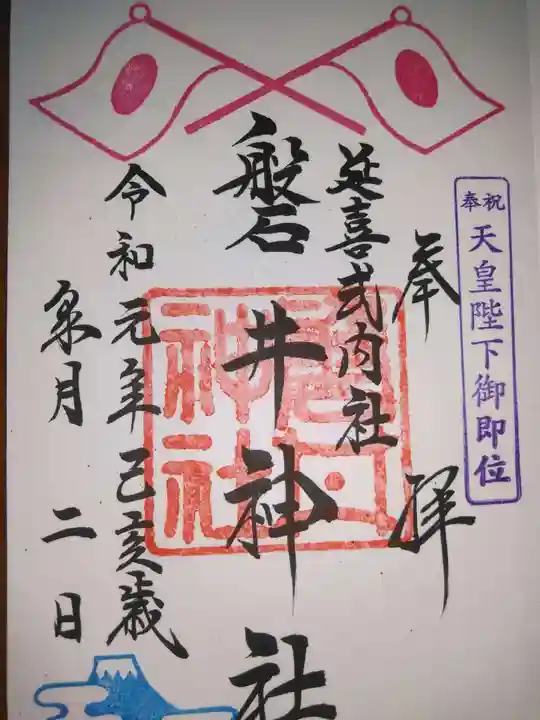 奉祝 天皇陛下御即位
奉拝
延喜式内社
磐井神社
令和元年己亥歳
皐月二日